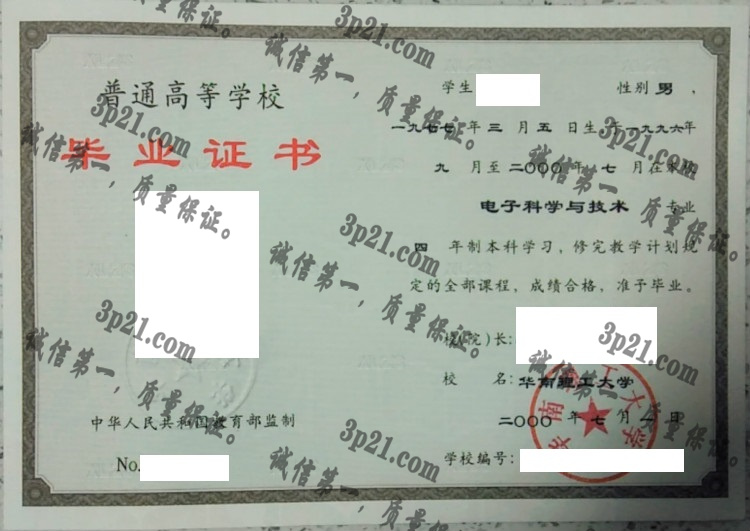 普通高等学校
毕业证书
中华人民共和国教育部监制
No.
学生 性别 男 ，
一九七七 年 三 月 五 日生 一九九六年
九 月至 二〇〇〇 年 七 月在本校
电子科学与技术 专业
四 年制本科学习，修完教学计划规
定的全部课程，成绩合格，准予毕业。
校（院）长：
校 名：华南理工大学
二〇〇〇 年 七 月 日
学校编号：
质量保证。
3p21.com
诚信第一，质量保证。
3p21.com
诚信第一，质量保证。
3p21.com
诚信第一，质量保证。
3p21.com
诚信第一，质量保证。
3p21.com
诚信第一，质量保证。
3p21.com
诚信第一，质量保证。
3p21.com
诚信第一，质量保证。